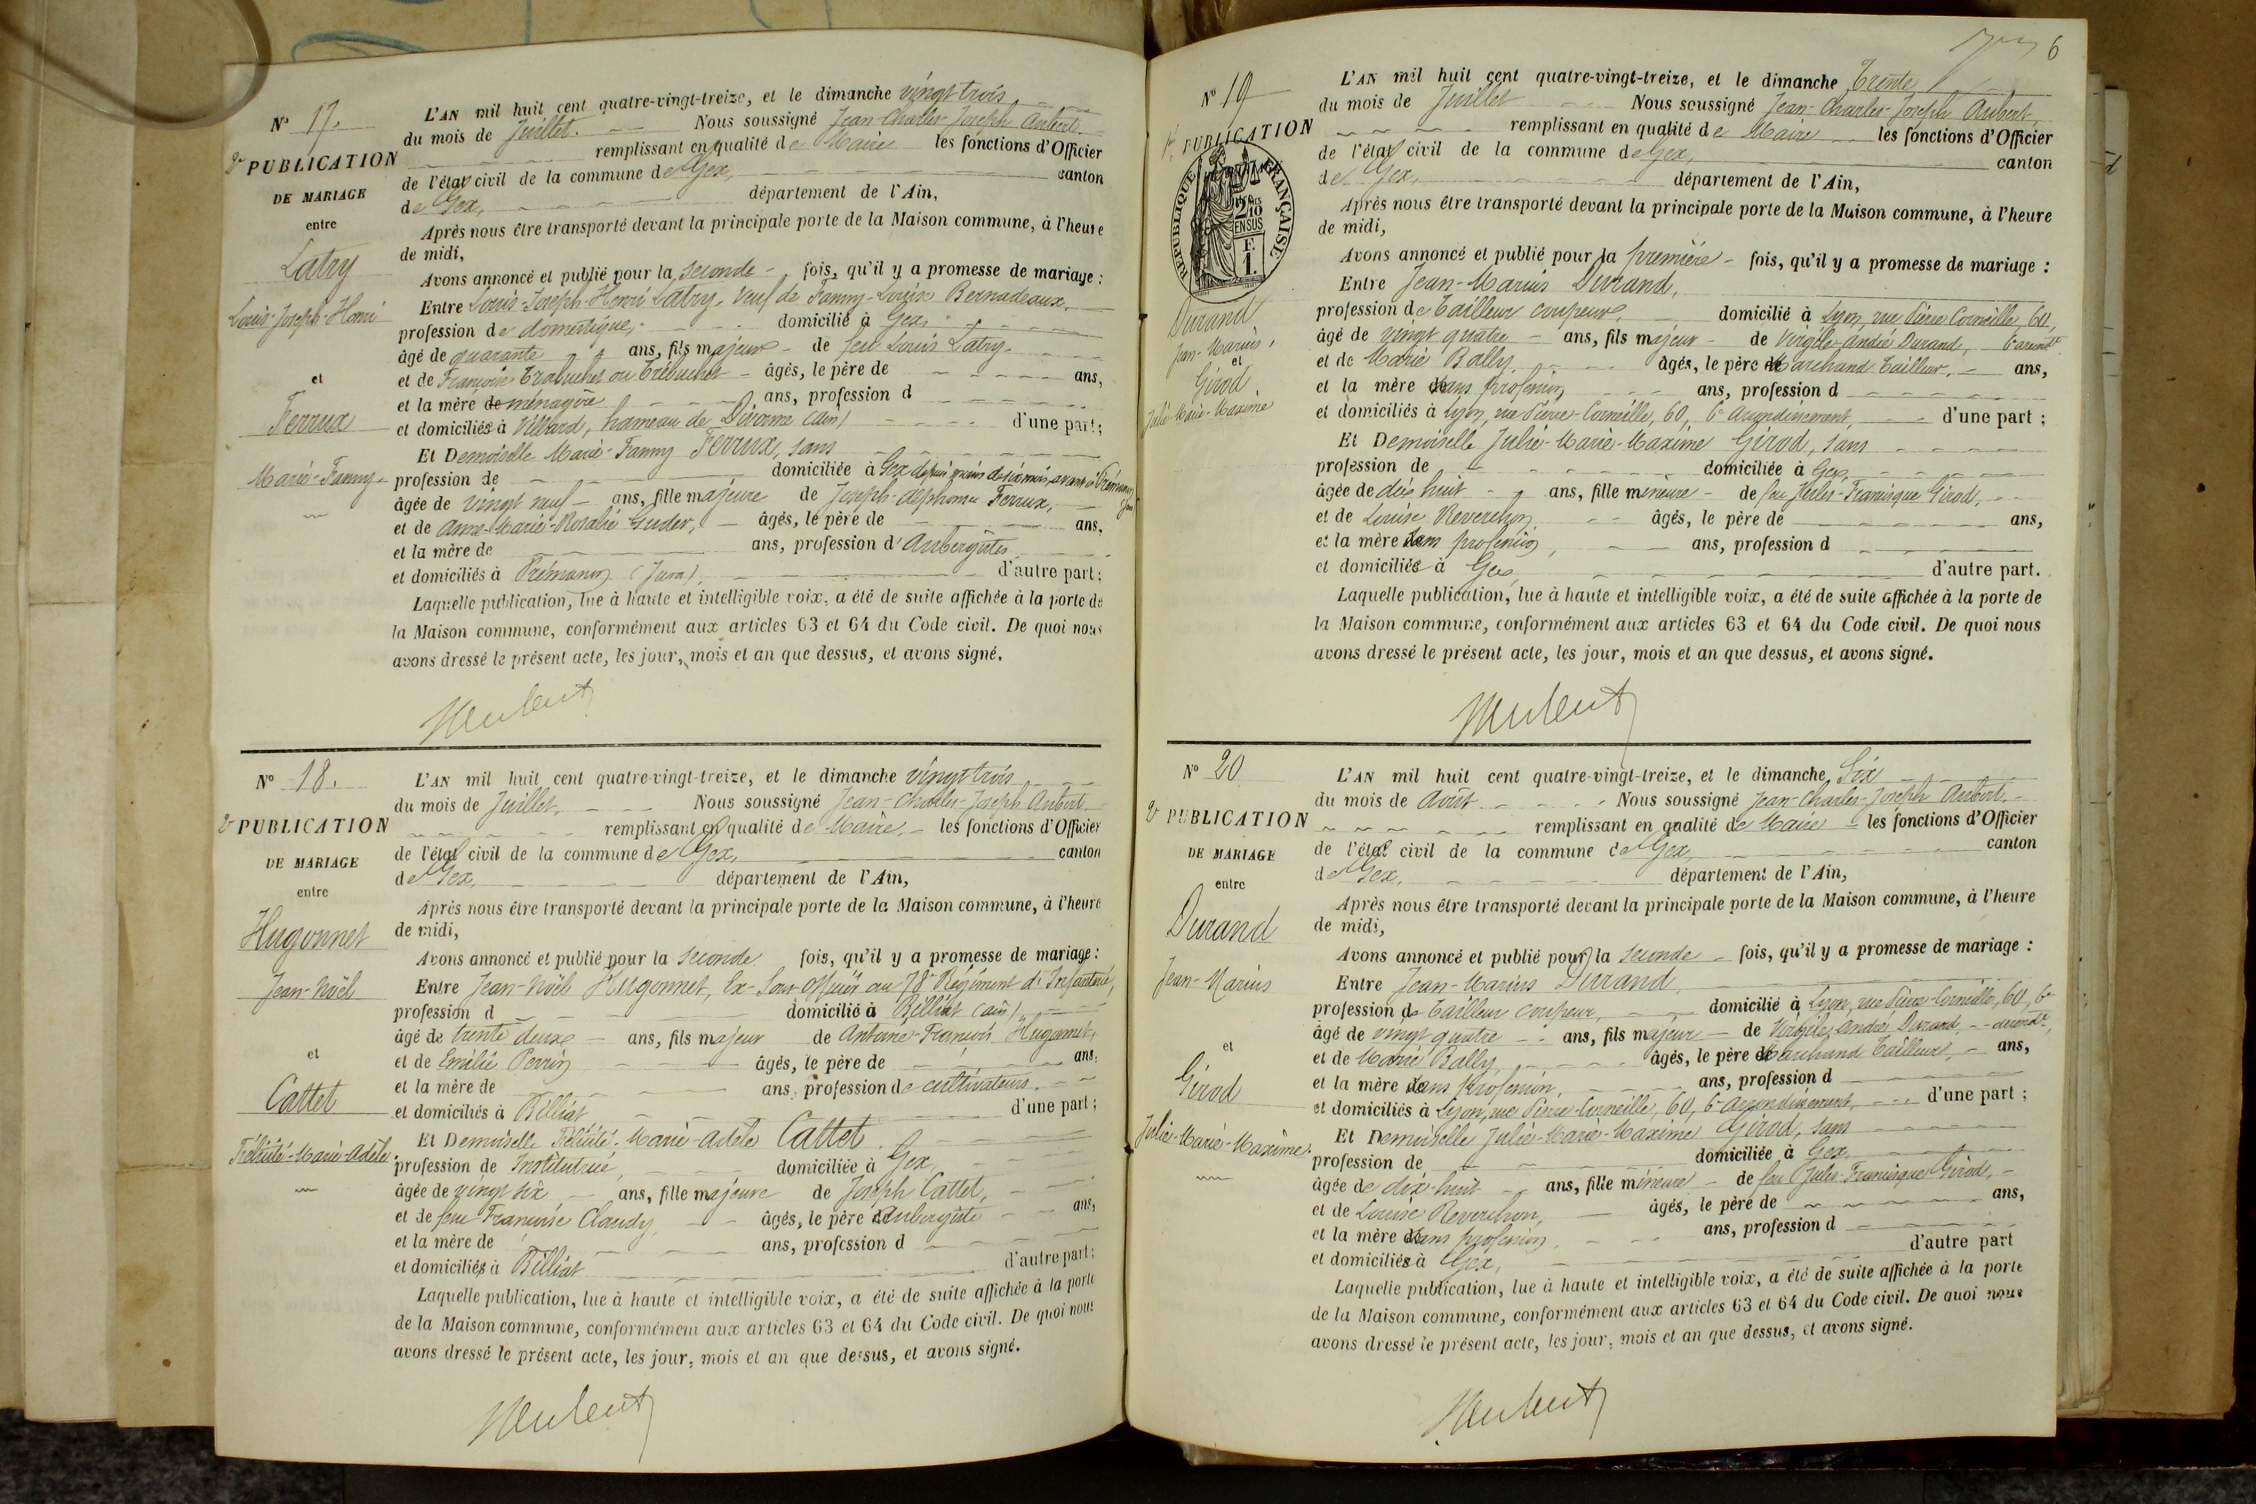 Nº 17.
2e PUBLICATION
DE MARIAGE
entre
Latry
Louis-Joseph-Henri
et
Ferrux
Marie-Fanny
L'AN mil huit cent quatre-vingt-treize, et le dimanche vingt trois
du mois de Juillet. Nous soussigné Jean-Charles-Joseph Aubert
remplissant en qualité de Maire les fonctions d'Officier
de l'état civil de la commune de Gex, canton
de Gex, département de l'Ain,
Après nous être transporté devant la principale porte de la Maison commune, à l'heure
de midi,
Avons annoncé et publié pour la seconde fois, qu'il y a promesse de mariage :
Entre Louis-Joseph-Henri Latry, veuf de Fanny-Louise Bernadeaux,
profession de domestique, domicilié à Gex,
âgé de quarante ans, fils majeur de feu Louis Latry
et de Françoise Trabuchet ou Trébuchet âgés, le père de ans,
et la mère de ménagère ans, profession d
et domiciliés à Villard, hameau de Divonne (Ain) d'une part;
Et Demoiselle Marie-Fanny Ferrux, sans
profession de domiciliée à Gex depuis moins de six mois, avant à Prémanon
âgée de vingt neuf ans, fille majeure de Joseph-Alphonse Ferrux,
et de Anne-Marie-Rosalie Guder, âgés, le père de ans,
et la mère de ans, profession d'Aubergistes
et domiciliés à Prémanon (Jura), d'autre part;
Laquelle publication, lue à haute et intelligible voix, a été de suite affichée à la porte de
la Maison commune, conformément aux articles 63 et 64 du Code civil. De quoi nous
avons dressé le présent acte, les jour, mois et an que dessus, et avons signé.
Nº 18.
2e PUBLICATION
DE MARIAGE
entre
Hugonnet
Jean-Noël
et
Cattet
Félicité-Marie-Adèle
L'AN mil huit cent quatre-vingt-treize, et le dimanche vingt trois
du mois de Juillet. Nous soussigné Jean-Charles-Joseph Aubert
remplissant en qualité de Maire, les fonctions d'Officier
de l'état civil de la commune de Gex, canton
de Gex, département de l'Ain,
Après nous être transporté devant la principale porte de la Maison commune, à l'heure
de midi,
Avons annoncé et publié pour la seconde fois, qu'il y a promesse de mariage :
Entre Jean-Noël Hugonnet, Ex-Sous-Officier au 78e Régiment d'Infanterie,
profession d domicilié à Billiat (Ain)
âgé de trente deux ans, fils majeur de Antoine-François Hugonnet,
et de Emélie Perrin âgés, le père de ans,
et la mère de ans, profession de cultivateurs.
et domiciliés à Billiat d'une part;
Et Demoiselle Félicité-Marie-Adèle Cattet
profession de Institutrice, domiciliée à Gex,
âgée de vingt six ans, fille majeure de Joseph Cattet,
et de feue Françoise Claudy âgés, le père aubergiste ans,
et la mère de ans, profession d
et domiciliés à Billiat d'autre part;
Laquelle publication, lue à haute et intelligible voix, a été de suite affichée à la porte
de la Maison commune, conformément aux articles 63 et 64 du Code civil. De quoi nous
avons dressé le présent acte, les jour, mois et an que dessus, et avons signé.
6
Nº 19
1e PUBLICATION
RÉPUBLIQUE FRANÇAISE
2/10
EN SUS
F.
1.
Durand
Jean-Marius,
et
Girod
Julie-Marie-Maxime
L'AN mil huit cent quatre-vingt-treize, et le dimanche Trente
du mois de Juillet Nous soussigné Jean-Charles-Joseph Aubert,
remplissant en qualité de Maire les fonctions d'Officier
de l'état civil de la commune de Gex, canton
de Gex, département de l'Ain,
Après nous être transporté devant la principale porte de la Maison commune, à l'heure
de midi,
Avons annoncé et publié pour la première fois, qu'il y a promesse de mariage :
Entre Jean-Marius Durand,
profession de Tailleur coupeur, domicilié à Lyon, rue Pierre Corneille, 60,
âgé de vingt quatre ans, fils majeur de Virgile-André Durand, 6e arrondt
et de Marie Bally, âgés, le père Marchand Tailleur, ans,
et la mère sans profession ans, profession d
et domiciliés à Lyon, rue Pierre-Corneille, 60, 6e arrondissement, d'une part ;
Et Demoiselle Julie-Marie-Maxime Girod, sans
profession de domiciliée à Gex,
âgée de dix huit ans, fille mineure de feu Jules-Francisque Girod,
et de Louise Reverchon âgés, le père de ans,
et la mère sans profession, ans, profession d
et domiciliés à Gex, d'autre part.
Laquelle publication, lue à haute et intelligible voix, a été de suite affichée à la porte de
la Maison commune, conformément aux articles 63 et 64 du Code civil. De quoi nous
avons dressé le présent acte, les jour, mois et an que dessus, et avons signé.
Nº 20
2e PUBLICATION
DE MARIAGE
entre
Durand
Jean-Marius
et
Girod
Julie-Marie-Maxime.
L'AN mil huit cent quatre-vingt-treize, et le dimanche Six
du mois de Août Nous soussigné Jean-Charles-Joseph Aubert,
remplissant en qualité de Maire les fonctions d'Officier
de l'état civil de la commune de Gex, canton
de Gex, département de l'Ain,
Après nous être transporté devant la principale porte de la Maison commune, à l'heure
de midi,
Avons annoncé et publié pour la seconde fois, qu'il y a promesse de mariage :
Entre Jean-Marius Durand
profession de Tailleur coupeur, domicilié à Lyon, rue Pierre-Corneille, 60, 6e
âgé de vingt quatre ans, fils majeur de Virgile André Durand, arrondt,
et de Marie Bally, âgés, le père Marchand Tailleur, ans,
et la mère sans profession, ans, profession d
et domiciliés à Lyon, rue Pierre-Corneille, 60, 6e arrondissement, d'une part ;
Et Demoiselle Julie-Marie-Maxime Girod, sans
profession de domiciliée à Gex
âgée de dix-huit ans, fille mineure de feu Jules-Francisque Girod,
et de Louise Reverchon, âgés, le père de ans,
et la mère sans profession ans, profession d
et domiciliés à Gex, d'autre part
Laquelle publication, lue à haute et intelligible voix, a été de suite affichée à la porte
de la Maison commune, conformément aux articles 63 et 64 du Code civil. De quoi nous
avons dressé le présent acte, les jour, mois et an que dessus, et avons signé.